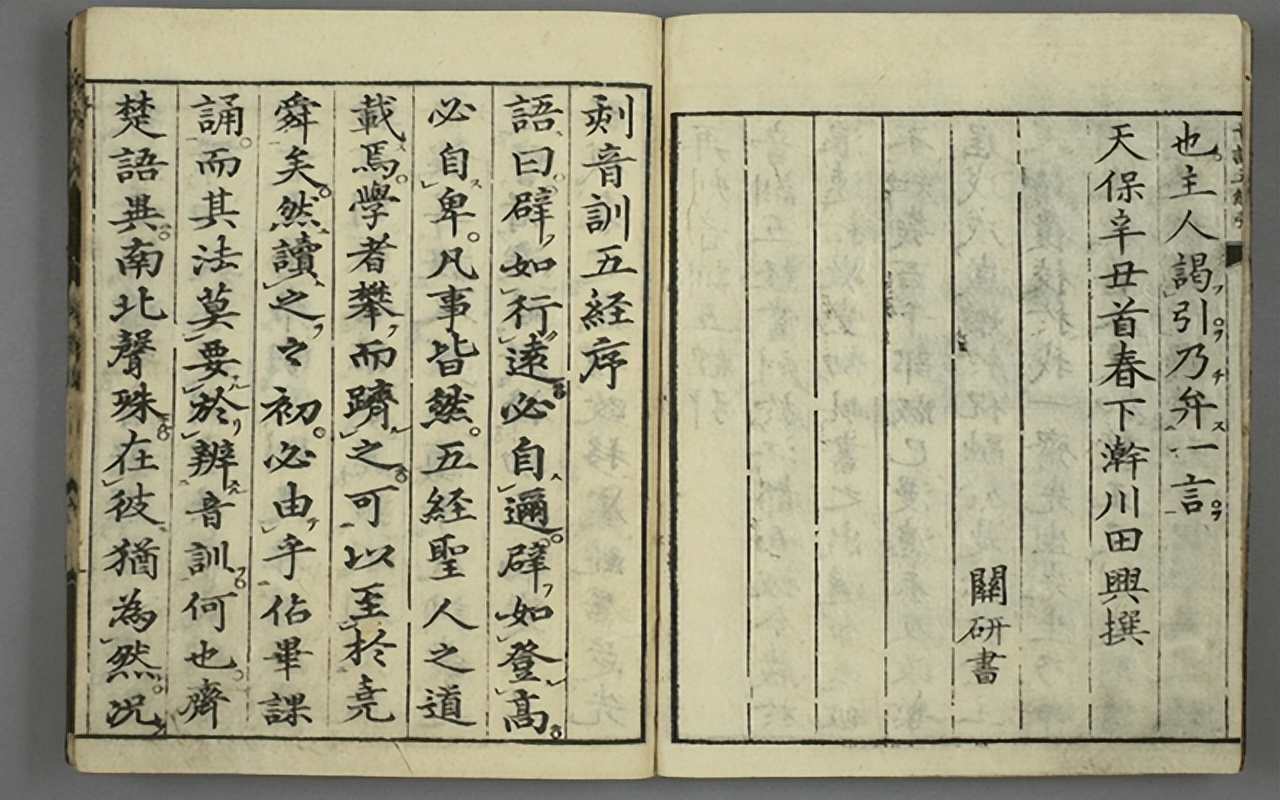 也主人謁引乃弁一言
天保辛丑首春下澣川田興撰
關研書
刻音訓五経序
語曰辟如行遠必自邇辟如登高
必自卑凡事皆然五経聖人之道
載焉學者攀而躋之可以至於尭
舜矣然讀之之初必由乎佔畢課
誦而其法莫要於辨音訓何也齊
楚語異南北聲殊在彼猶為然况